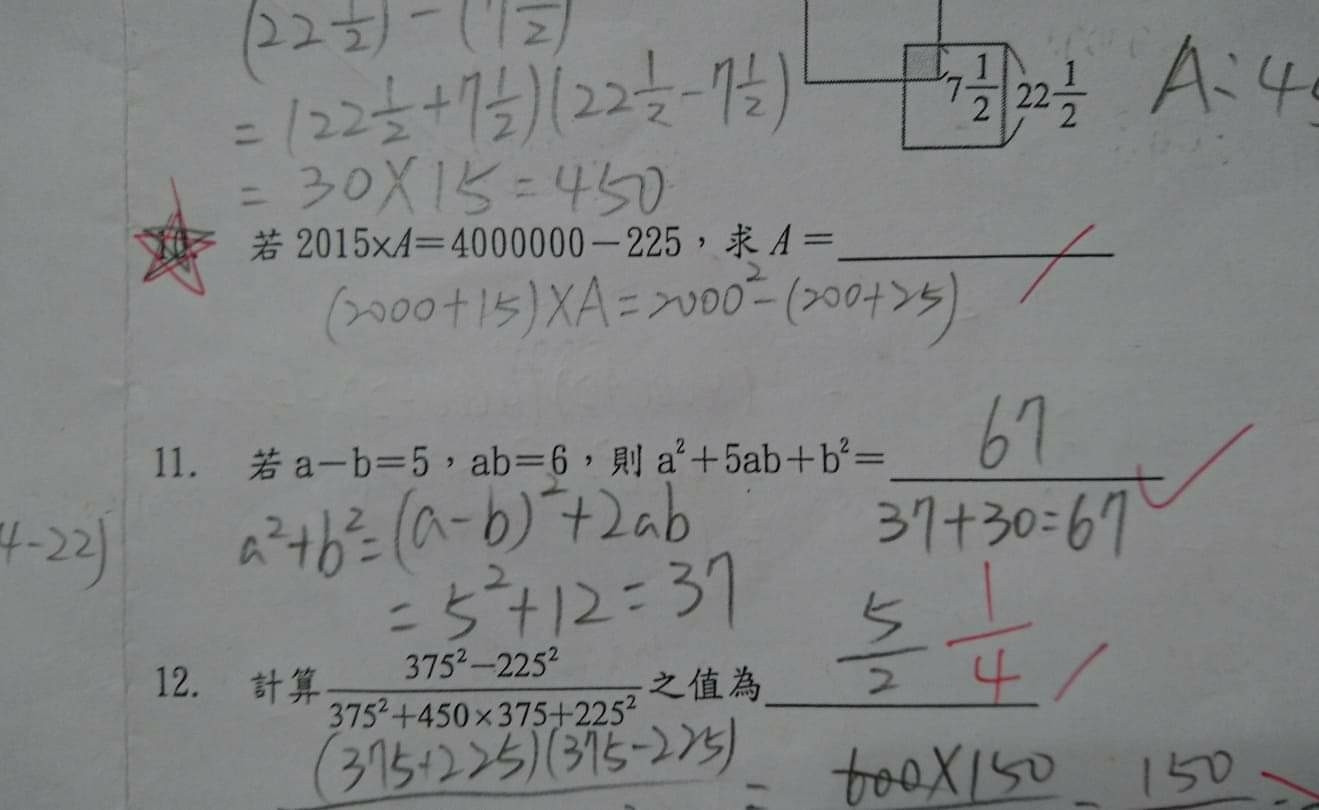 (22 1/2) - (7 1/2)
= (22 1/2 + 7 1/2)(22 1/2 - 7 1/2)
7 1/2
22 1/2
A:
= 30 X 15 = 450
若 2015×A=4000000−225，求 A =
(2000+15)XA = 2000² - (200+25)
11. 若 a−b=5，ab=6，則 a²+5ab+b²= 67
a²+b² = (a-b)²+2ab
37+30=67
4-22)
= 5²+12 = 37
12. 計算 (375²−225²)/(375²+450×375+225²) 之值為 5/2 1/4
(375+225)(375-225) = 600X150 = 150